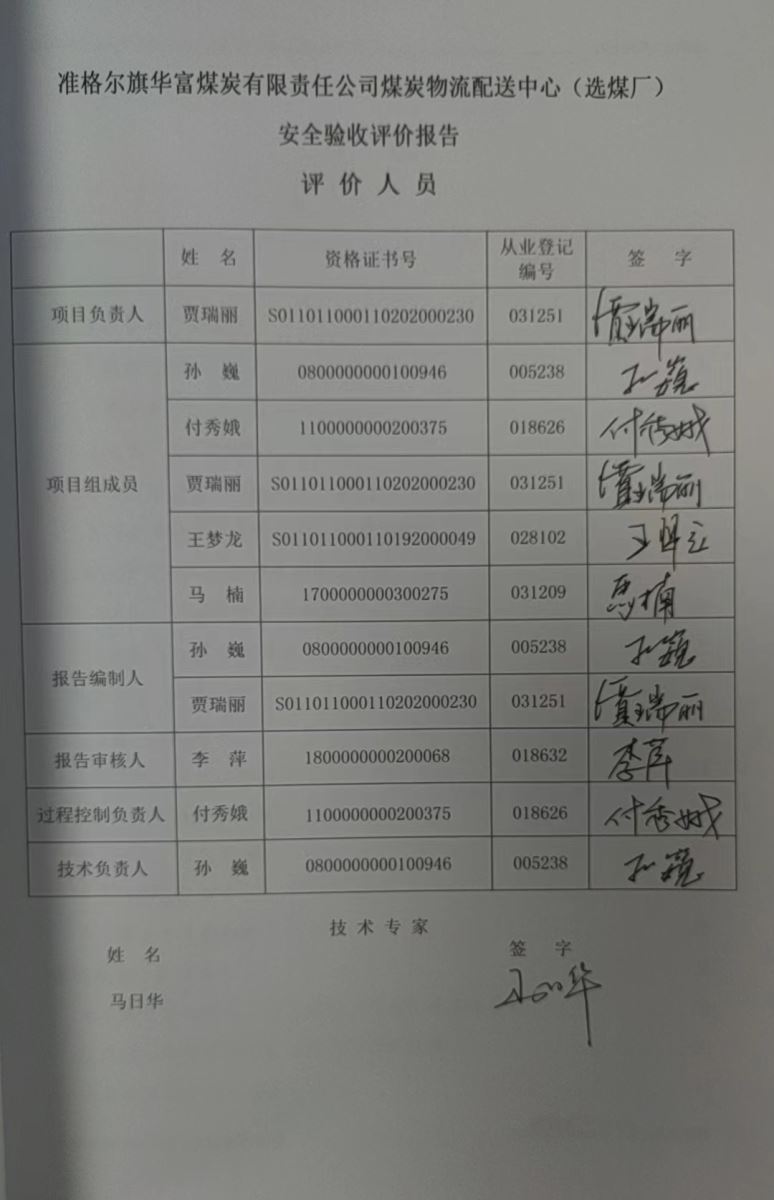 准格尔旗华富煤炭有限责任公司煤炭物流配送中心（选煤厂）
安全验收评价报告
评 价 人 员
姓 名 资格证书号 从业登记编号 签 字
项目负责人 贾瑞丽 S011011000110202000230 031251 贾瑞丽
项目组成员 孙 巍 0800000000100946 005238 孙巍
付秀娥 1100000000200375 018626 付秀娥
贾瑞丽 S011011000110202000230 031251 贾瑞丽
王梦龙 S011011000110192000049 028102
马 楠 1700000000300275 031209 馬楠
报告编制人 孙 巍 0800000000100946 005238 孙巍
贾瑞丽 S011011000110202000230 031251 贾瑞丽
报告审核人 李 萍 1800000000200068 018632 李萍
过程控制负责人 付秀娥 1100000000200375 018626 付秀娥
技术负责人 孙 巍 0800000000100946 005238 孙巍
技 术 专 家
姓 名 签 字
马日华